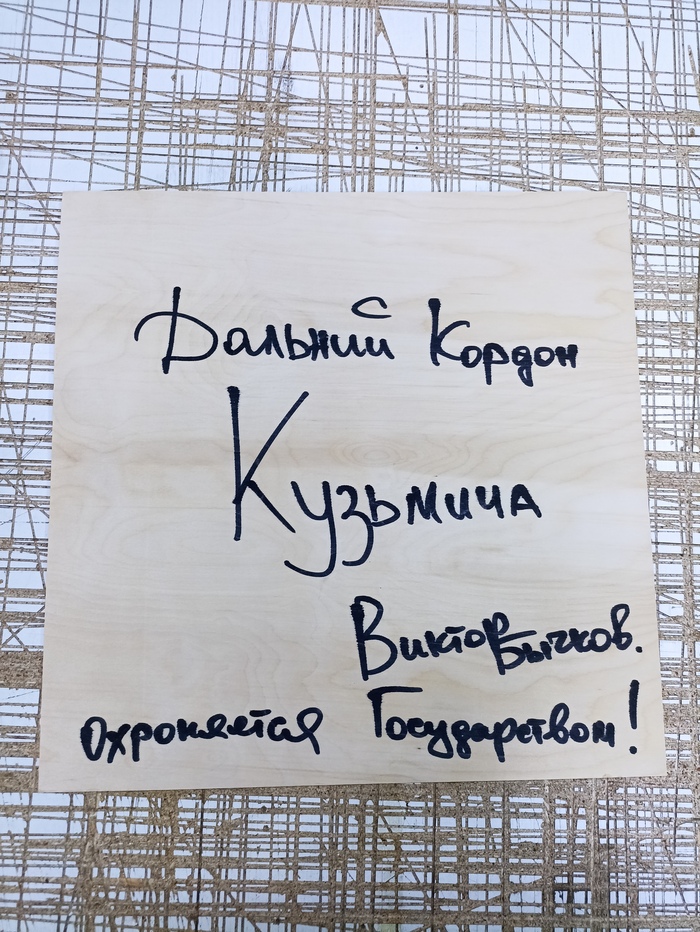 Дальний Кордон
Кузьмича
Виктор Бычков.
Охраняется Государством!